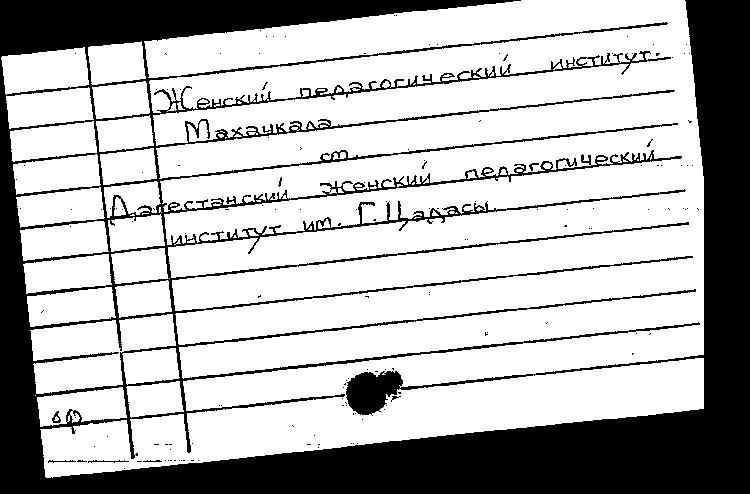 Женский педагогический институт.
Махачкала.
см.
Дагестанский женский педагогический
институт им. Г. Цадасы.